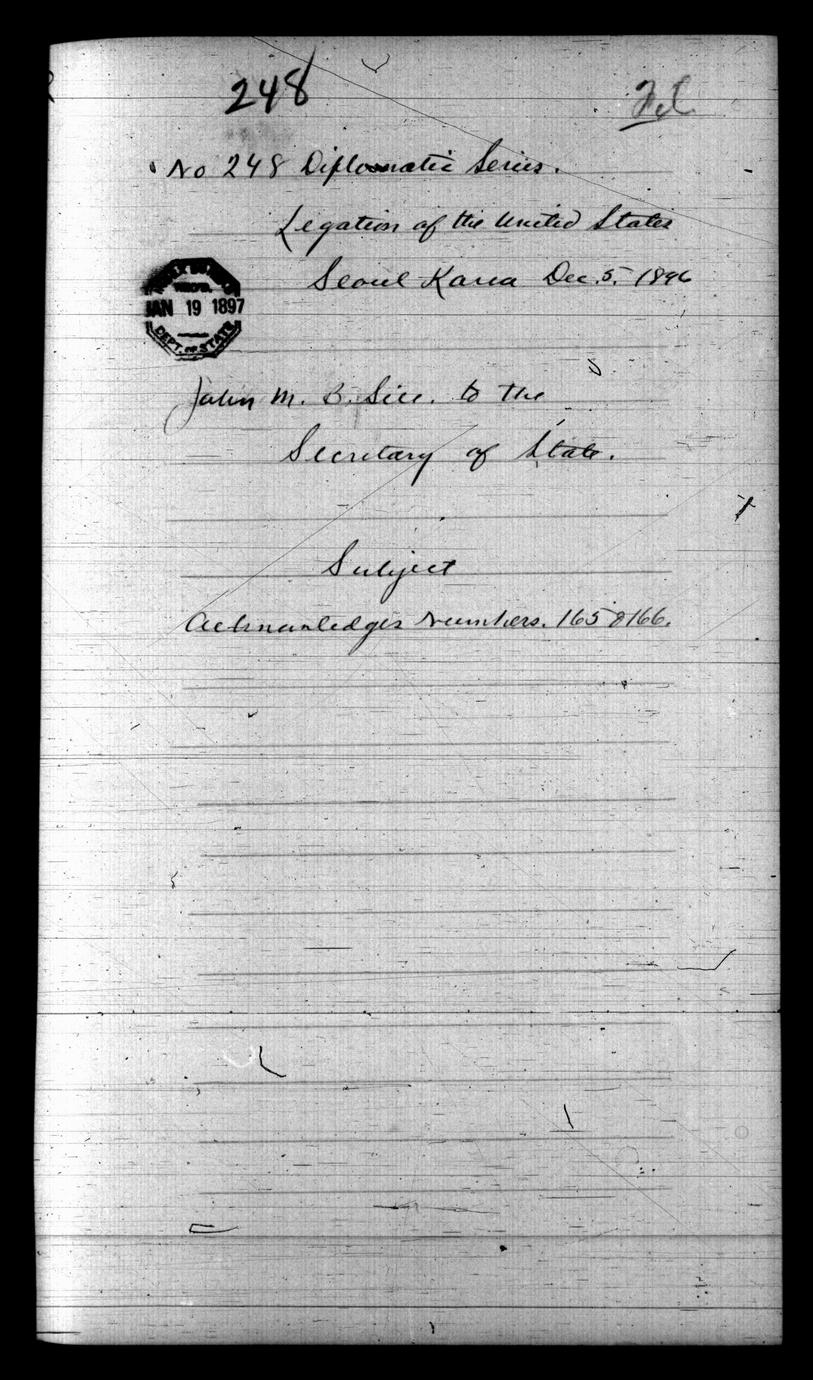 248
No 248 Diplomatic Series.
Legation of the United States
Seoul Korea Dec. 5. 1896
JAN 19 1897
DEPT. OF STATE
John M. B. Sill. to the
Secretary of State.
Subject
Acknowledges Numbers. 165 & 166.